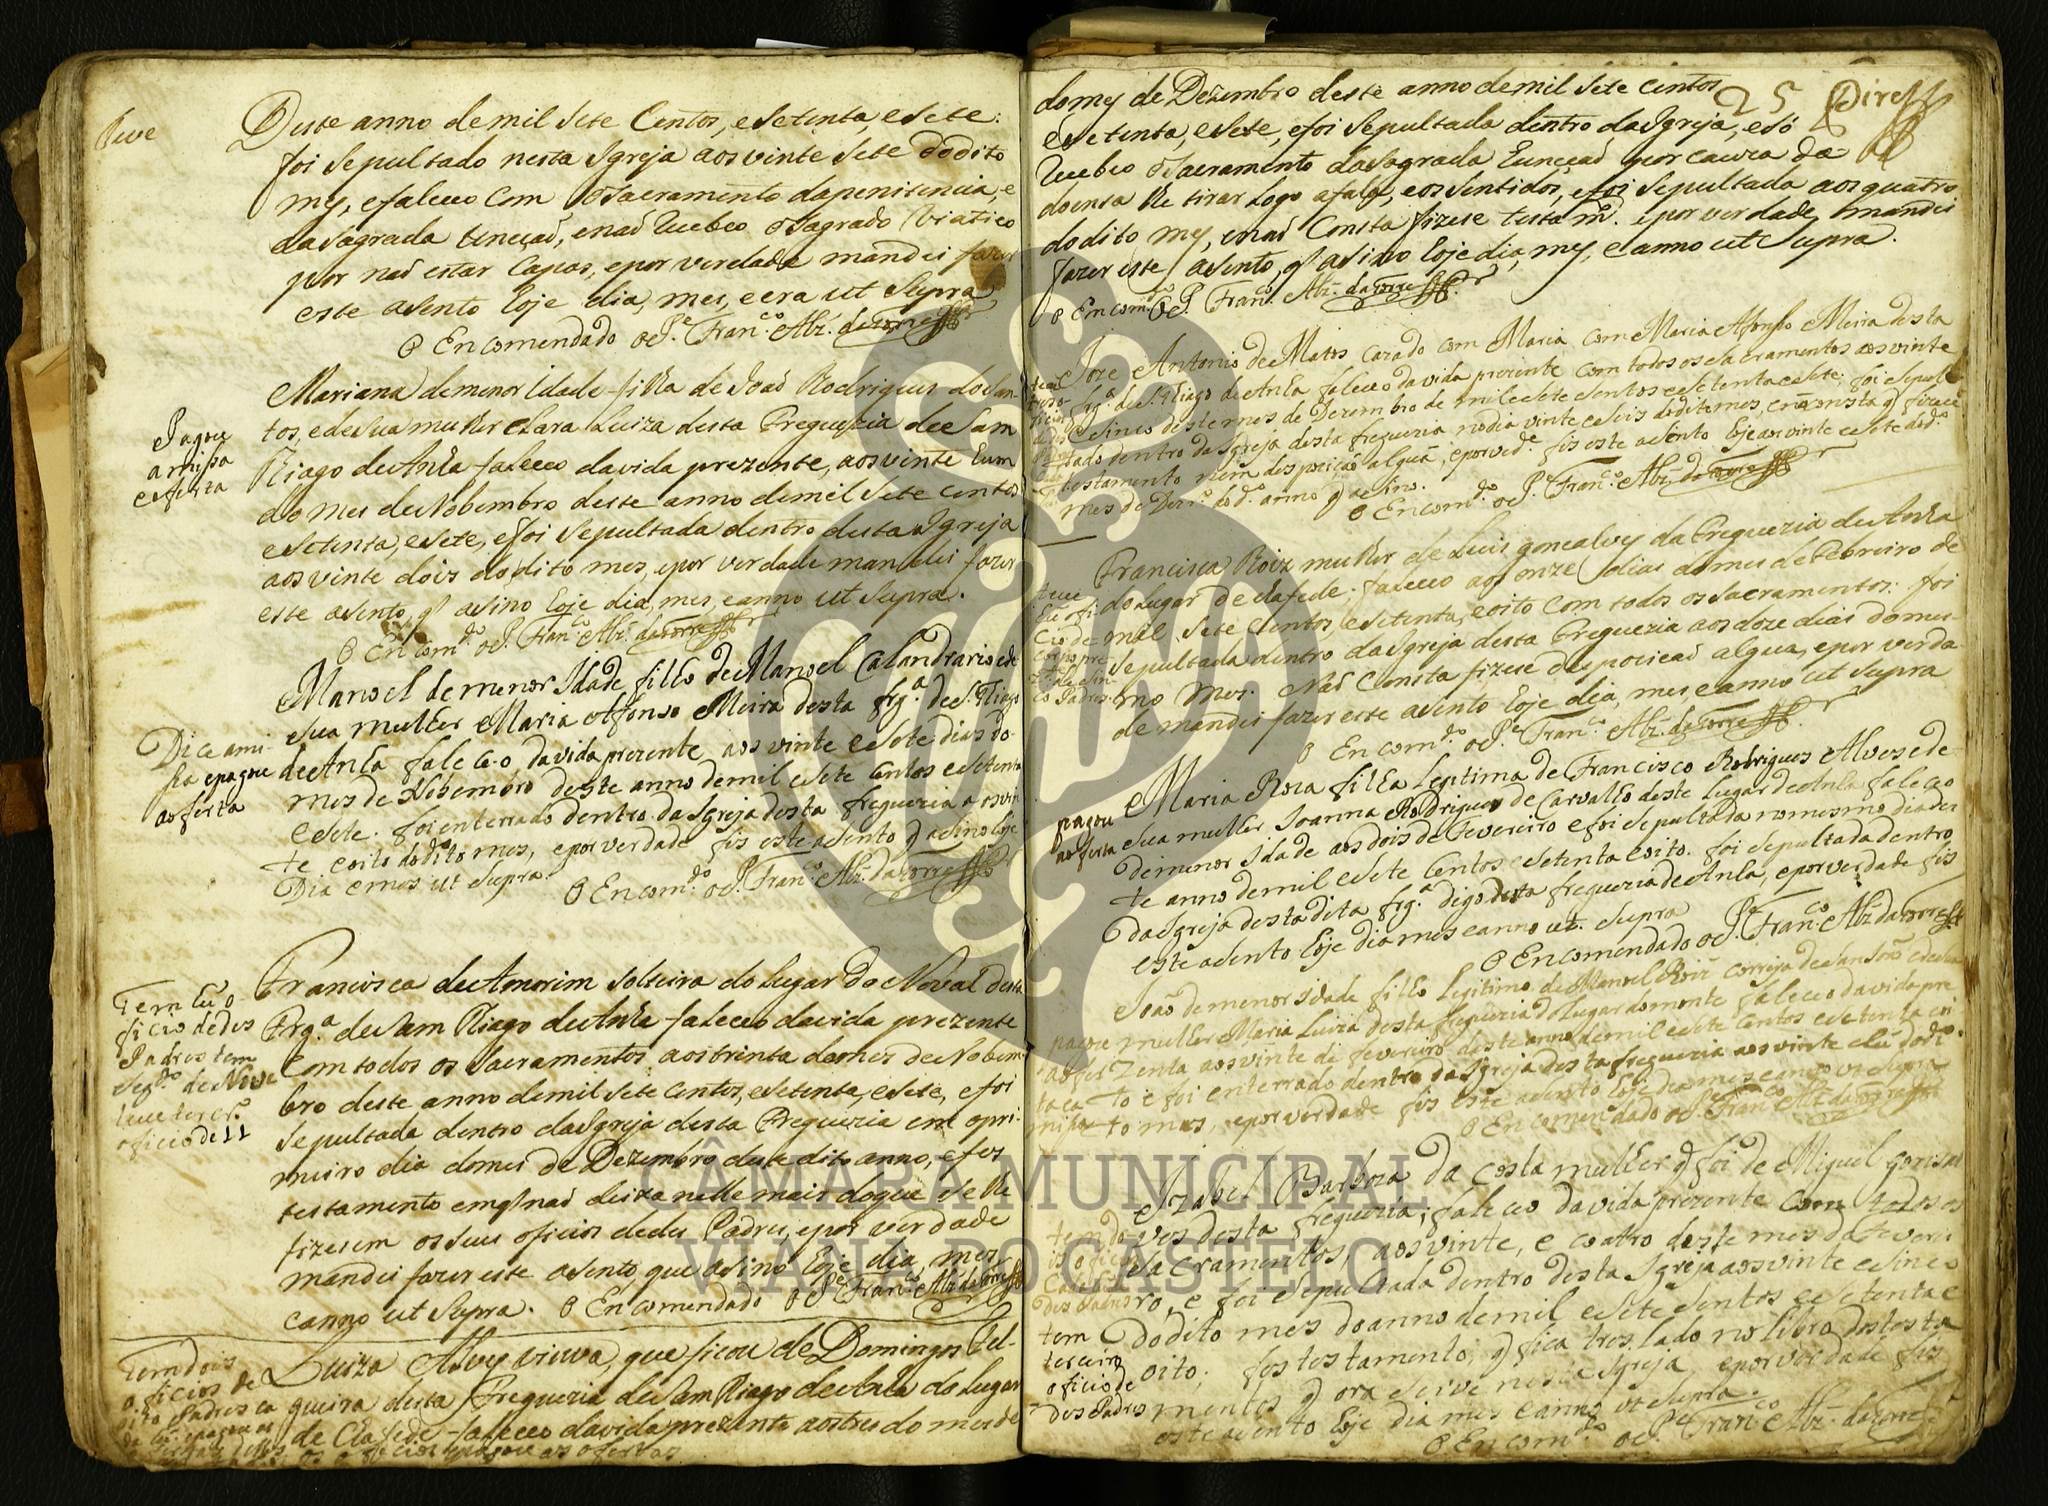 Deste anno de mil Sete Centos, e Setenta, e Sete.
foi Sepultado nesta Igreja aos vinte Sete do dito
mes, e faleceo Com o Sacramento da penitencia, e
da Sagrada Uncçaõ, e naõ Recebeo o Sagrado Viatico
por naõ estar Capas, e por verdade mandei fazer
este asento hoje dia, mes, e era ut Supra
O Encomendado o P.e Fran.co Alz. da torre
Pagou
a missa
e oferta
Mariana de menor Idade filha de Joaõ Rodrigues dos San-
tos, e de Sua mulher Clara Luiza desta Freguezia de Sam
Thiago de Anha faleceo da vida prezente, aos vinte hum
do mes de Nobembro deste anno de mil Sete centos
e Setenta, e Sete, e foi Sepultada dentro desta Igreja
aos vinte dois do dito mes, e por verdade mandei fazer
este asento, q asino hoje dia, mes, e anno ut Supra.
O Encom.do o P. Fran.co Alz. da torre
Manoel de menor Idade filho de Manoel Calandrario e de
Sua mulher Maria Afonso Meira desta frg.a de S. Thiago
Dice a mi-
sa e pagou
a oferta
de Anha faleceo da vida prezente aos vinte e Sete dias do
mes de Nobembro deste anno de mil e Sete Centos e Setenta
e Sete. foi enterrado dentro da Igreja desta freguezia aos vin
te e oito do dito mes, e por verdade fis este asento q asino hoje
Dia e mes ut Supra.
O Encom.do o P. Fran.co Alz. da torre
Tem hũ o-
ficio de des
Padres tem
Seg.do de Nove
teve tercr.o
oficio de 11
Francisca de Amorim Solteira do lugar do Noval desta
Frg.a de Sam Thiago de Anha faleceo da vida prezente
Com todos os Sacramentos aos trinta do mes de Nobem-
bro deste anno de mil Sete centos, e Setenta, e Sete, e foi
Sepultada dentro da Igreja desta Freguezia em o pri-
meiro dia do mes de Dezembro deste dito anno, e fes
testamento em q naõ deixa nelle mais do que Se lhe
fizesem os Seus oficios de des Padres, e por verdade
mandei fazer este asento, que asino hoje dia, mes
e anno ut Supra. O Encomendado o P.e Fran.co Alz. da torre
Tem dois
oficios de
oito Padres ca
da hũ
Luiza Alves viuva, que ficou de Domingos Fel-
gueira desta Freguezia de Sam Thiago de Anha do lugar
de Chafede faleceo da vida prezente aos tres do mes de
25
do mes de Dezembro deste anno de mil Sete centos
e Setenta, e Sete, e foi Sepultada dentro da Igreja, e Só
Recebeo o Sacramento da Sagrada Eunçaõ por cauza da
doensa lhe tirar logo a fala, e os Sentidos, e foi Sepultada aos quatro
do dito mes, e naõ Consta fizese testam.to e por verdade mandei
fazer este asento, q asino hoje dia, mes, e anno ut Supra.
O Encom.do o P. Fran.co Alz. da torre
Joze Antonio de Matos cazado com Maria com Maria Afonso Meira desta
frg.a de S. Thiago de Anha faleceo da vida prezente com todos os Sacramentos aos vinte
e Sinco deste mes de Dezembro de mil e Sete Sentos e Setenta e Sete; foi Sepul-
tado dentro da Igreja desta freguezia no dia vinte e Seis do dito mes, e naõ consta q fizece
testamento nem despoziçaõ alguã, e por verd.e fis este asento hoje aos vinte e Sete do d.o
mes de Dezr.o do d.o anno q asino.
O Encom.do o P. Fran.co Alz. da torre
teve
hũ ofi
cio de
corpo pre
z.te de Sin
co Padres.
Francisca Roiz mulher de Luis goncalves da Freguezia de Anha
do lugar de Chafede; faleceo aos onze dias do mes de Febreiro de
mil Sete Centos, e Setenta, e oito Com todos os Sacramentos: foi
Sepultada dentro da Igreja desta Freguezia aos doze dias do mes-
mo mes. Naõ Consta fizese despociçaõ algua, e por verda-
de mandei fazer este asento hoje dia, mes e anno ut Supra
O Encom.do o P.e Fran.co Alz. da torre
pagou
a oferta
Maria Roza filha Legitima de Francisco Rodrigues Alves e de
Sua mulher Joanna Rodrigues de Carvalho deste lugar de Anha faleceo
de minor Idade aos dois de Fevereiro e foi Sepultada no mesmo dia des
te anno de mil e Sete Centos e Setenta e oito. foi Sepultada dentro
da Igreja desta dita frg.a digo desta freguezia de Anha, e por verdade fis
este asento hoje dia mes e anno ut Supra
O Encomendado o P.e Fran.co Alz. da torre
Joaõ de menor Idade filho Legitimo de Manoel Roiz correja de San Joaõ e de Sua
mulher Maria Luiza desta freguezia do Lugar do monte faleceo da vida pre
zenta aos vinte de fevereiro deste anno de mil e Sete Centos e Setenta e oi
to e foi enterrado dentro da Igreja desta freguezia aos vinte e hũ do di
to mes, e por verdade fis este asento hoje dia mes e anno ut Supra
O Encomendado o P.e Fran.co Alz. da torre
Izabel Barboza da Costa mulher q foi de Miguel gonsal
ves desta freguezia; faleceo da vida prezente com todos os
Sacramentos, aos vinte, e coatro deste mes de Feverei
ro, e foi Sepultada dentro desta Igreja aos vinte e Sinco
tem
terceiro
oficio de
des Padres
do dito mes do anno de mil e Sete Sentos e Setenta e
oito. fes testamento, q fica treslado no libro dos testa
mentos q ora Serve nesta Igreja e por verdade fis
este asento hoje dia mes e anno ut Supra.
O Encom.do o P.e Fran.co Alz. da torre
CÂMARA MUNICIPAL
VIANA DO CASTELO